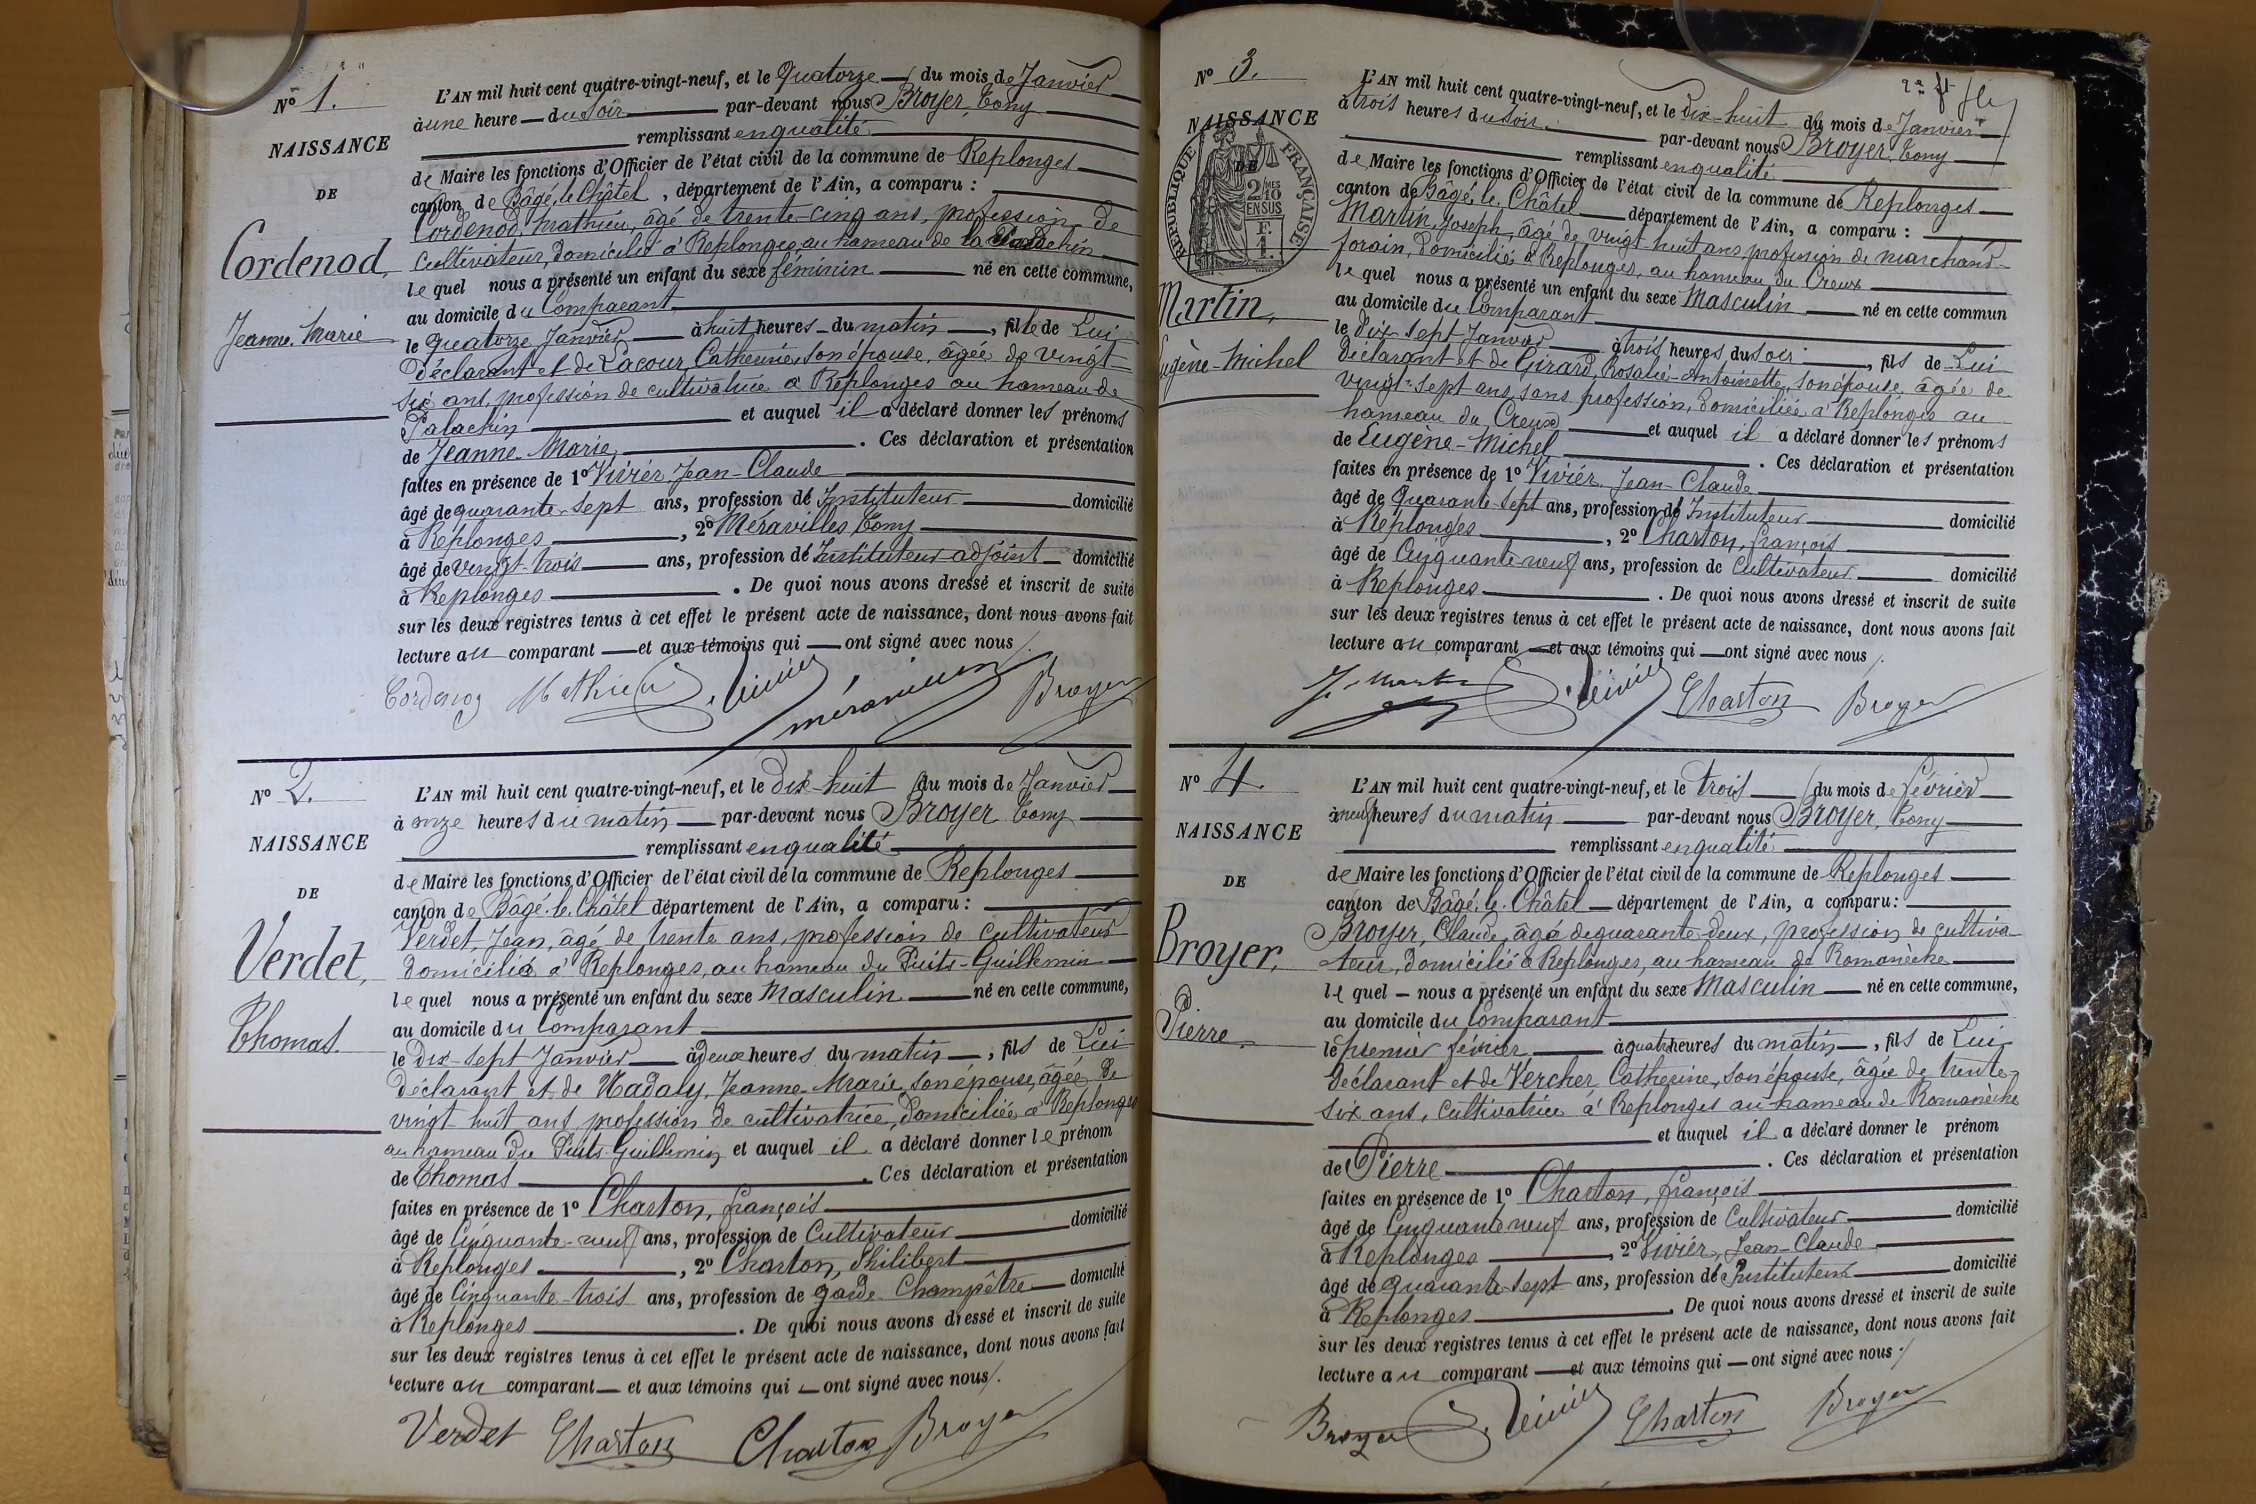 N° 1.
NAISSANCE
DE
Cordenod,
Jeanne-Marie
L'AN mil huit cent quatre-vingt-neuf, et le Quatorze du mois de Janvier
à une heure du soir par-devant nous Broyer, Tony
remplissant en qualité
de Maire les fonctions d'Officier de l'état civil de la commune de Replonges
canton de Bâgé-le-Châtel, département de l'Ain, a comparu :
Cordenod, Mathieu, âgé de trente-cinq ans, profession de
cultivateur, domicilié à Replonges, au hameau de la
le quel nous a présenté un enfant du sexe féminin né en cette commune,
au domicile du Comparant
le quatorze Janvier à huit heures du matin, fille de Lui
Déclarant et de Lacour, Catherine, son épouse, âgée de vingt-
six ans, profession de cultivatrice à Replonges au hameau de
Palachin et auquel il a déclaré donner les prénoms
de Jeanne-Marie. Ces déclaration et présentation
faites en présence de 1° Vivier, Jean-Claude
âgé de quarante-sept ans, profession de Instituteur domicilié
à Replonges, 2° Meravilles, Tony
âgé de vingt-trois ans, profession de Instituteur-adjoint domicilié
à Replonges. De quoi nous avons dressé et inscrit de suite
sur les deux registres tenus à cet effet le présent acte de naissance, dont nous avons fait
lecture au comparant et aux témoins qui ont signé avec nous.
Cordenod Mathieu Vivier Broyer
N° 2.
NAISSANCE
DE
Verdet,
Thomas.
L'AN mil huit cent quatre-vingt-neuf, et le Dix-huit du mois de Janvier
à onze heures du matin par-devant nous Broyer, Tony
remplissant en qualité
de Maire les fonctions d'Officier de l'état civil de la commune de Replonges
canton de Bâgé-le-Châtel département de l'Ain, a comparu :
Verdet, Jean, âgé de trente ans, profession de cultivateur
domicilié à Replonges, au hameau du Puits-Guillemin
le quel nous a présenté un enfant du sexe Masculin né en cette commune,
au domicile du Comparant
le Dix-sept Janvier à deux heures du matin, fils de Lui
Déclarant et de Nadaly, Jeanne-Marie, son épouse, âgée de
vingt-huit ans, profession de cultivatrice, domiciliée à Replonges
au hameau du Puits-Guillemin et auquel il a déclaré donner le prénom
de Thomas. Ces déclaration et présentation
faites en présence de 1° Charton, françois
âgé de Cinquante-neuf ans, profession de Cultivateur domicilié
à Replonges, 2° Charton, Philibert
âgé de Cinquante-trois ans, profession de garde-Champêtre domicilié
à Replonges. De quoi nous avons dressé et inscrit de suite
sur les deux registres tenus à cet effet le présent acte de naissance, dont nous avons fait
lecture au comparant et aux témoins qui ont signé avec nous.
Verdet Charton Charton Broyer
N° 3.
NAISSANCE
DE
RÉPUBLIQUE FRANÇAISE
2/10 MES
EN SUS
1 F.
Martin,
Eugène-Michel
L'AN mil huit cent quatre-vingt-neuf, et le Dix-huit du mois de Janvier
à trois heures du soir par-devant nous Broyer, Tony
remplissant en qualité
de Maire les fonctions d'Officier de l'état civil de la commune de Replonges
canton de Bâgé-le-Châtel département de l'Ain, a comparu :
Martin, Joseph, âgé de vingt-huit ans, profession de marchand
forain, domicilié à Replonges, au hameau du Creux
le quel nous a présenté un enfant du sexe Masculin né en cette commun
au domicile du Comparant
le dix-sept Janvier à trois heures du soir, fils de Lui
Déclarant et de Girard, Rosalie-Antoinette, son épouse, âgée de
vingt-sept ans, sans profession, domiciliée à Replonges au
hameau du Creux et auquel il a déclaré donner les prénoms
de Eugène-Michel. Ces déclaration et présentation
faites en présence de 1° Vivier, Jean-Claude
âgé de Quarante-sept ans, profession de Instituteur domicilié
à Replonges, 2° Charton, françois
âgé de Cinquante-neuf ans, profession de Cultivateur domicilié
à Replonges. De quoi nous avons dressé et inscrit de suite
sur les deux registres tenus à cet effet le présent acte de naissance, dont nous avons fait
lecture au comparant et aux témoins qui ont signé avec nous.
Vivier Charton Broyer
N° 4.
NAISSANCE
DE
Broyer,
Pierre
L'AN mil huit cent quatre-vingt-neuf, et le trois du mois de février
à neuf heures du matin par-devant nous Broyer, Tony
remplissant en qualité
de Maire les fonctions d'Officier de l'état civil de la commune de Replonges
canton de Bâgé-le-Châtel département de l'Ain, a comparu :
Broyer, Claude, âgé de quarante-deux, profession de cultiva-
teur, domicilié à Replonges, au hameau de Romanèche
le quel nous a présenté un enfant du sexe Masculin né en cette commune,
au domicile du Comparant
le premier février à quatre heures du matin, fils de Lui
Déclarant et de Vercher, Catherine, son épouse, âgée de trente-
six ans, cultivatrice à Replonges au hameau de Romanèche
et auquel il a déclaré donner le prénom
de Pierre. Ces déclaration et présentation
faites en présence de 1° Charton, françois
âgé de Cinquante-neuf ans, profession de Cultivateur domicilié
à Replonges, 2° Vivier, Jean-Claude
âgé de quarante-sept ans, profession de Instituteur domicilié
à Replonges. De quoi nous avons dressé et inscrit de suite
sur les deux registres tenus à cet effet le présent acte de naissance, dont nous avons fait
lecture au comparant et aux témoins qui ont signé avec nous.
Broyer Vivier Charton Broyer